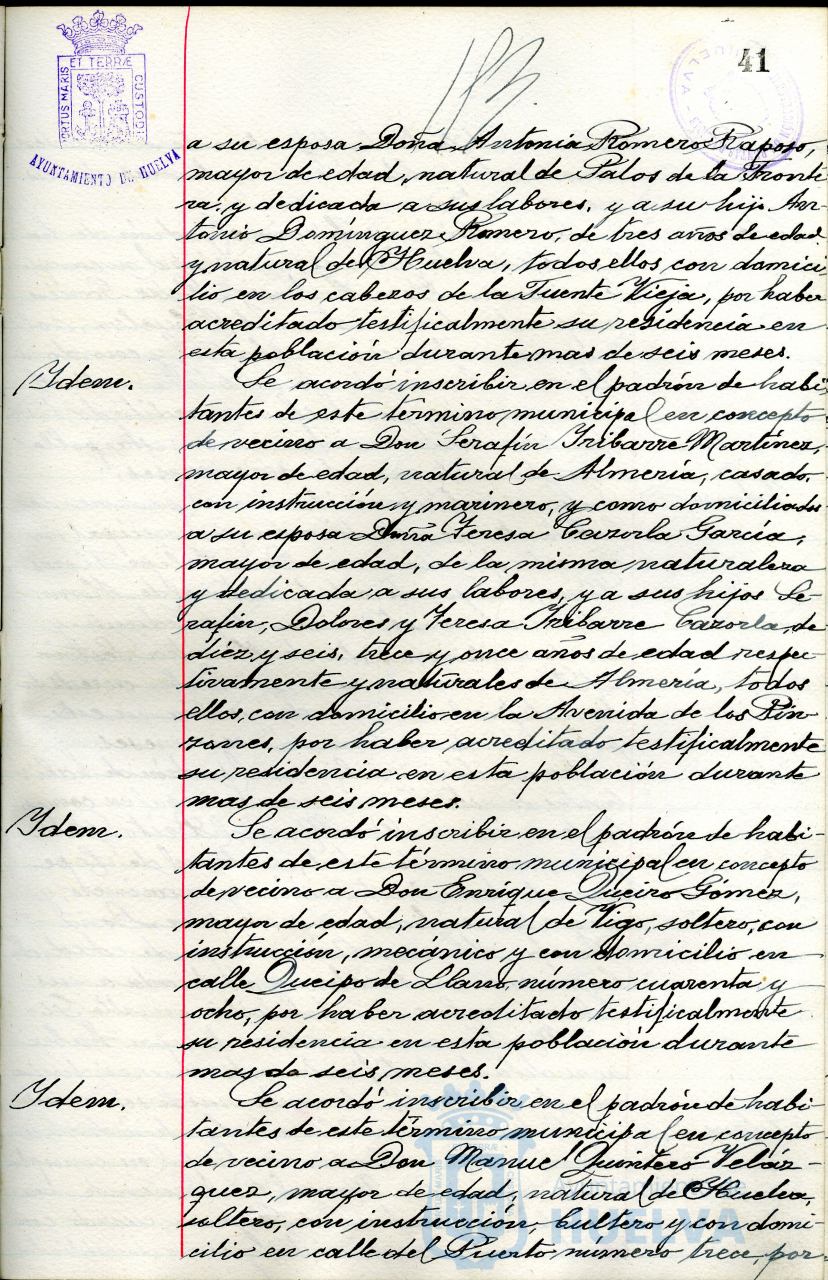 41
ET TERRÆ
PORTUS MARIS
CUSTODIA
AYUNTAMIENTO DE HUELVA
a su esposa Doña Antonia Romero Raposo,
mayor de edad, natural de Palos de la Fronte
ra, y dedicada a sus labores, y a su hijo An
tonio Domínguez Romero, de tres años de edad
y natural de Huelva, todos ellos con domici
lio en los cabezos de la Fuente Vieja, por haber
acreditado testificalmente su residencia en
esta población durante mas de seis meses.
Idem.
Se acordó inscribir en el padrón de habi-
tantes de este término municipal en concepto
de vecino a Don Serafín Iribarre Martínez,
mayor de edad, natural de Almería, casado,
con instrucción y marinero, y como domiciliados
a su esposa Doña Teresa Cazorla García,
mayor de edad, de la misma naturaleza
y dedicada a sus labores, y a sus hijos Se-
rafín, Dolores y Teresa Iribarre Cazorla, de
diez y seis, trece y once años de edad respec-
tivamente y naturales de Almería, todos
ellos, con domicilio en la Avenida de los Pin-
zones, por haber acreditado testificalmente
su residencia en esta población durante
mas de seis meses.
Idem.
Se acordó inscribir en el padrón de habi-
tantes de este término municipal en concepto
de vecino a Don Enrique Queiro Gómez,
mayor de edad, natural de Vigo, soltero, con
instrucción, mecánico y con domicilio en
calle Queipo de Llano, número cuarenta y
ocho, por haber acreditado testificalmente
su residencia en esta población durante
mas de seis meses.
Idem.
Se acordó inscribir en el padrón de habi-
tantes de este término municipal en concepto
de vecino a Don Manuel Quintero Veláz-
quez, mayor de edad, natural de Huelva,
soltero, con instrucción, bultero y con domi-
cilio en calle del Puerto número trece, por
Ayuntamiento de
HUELVA